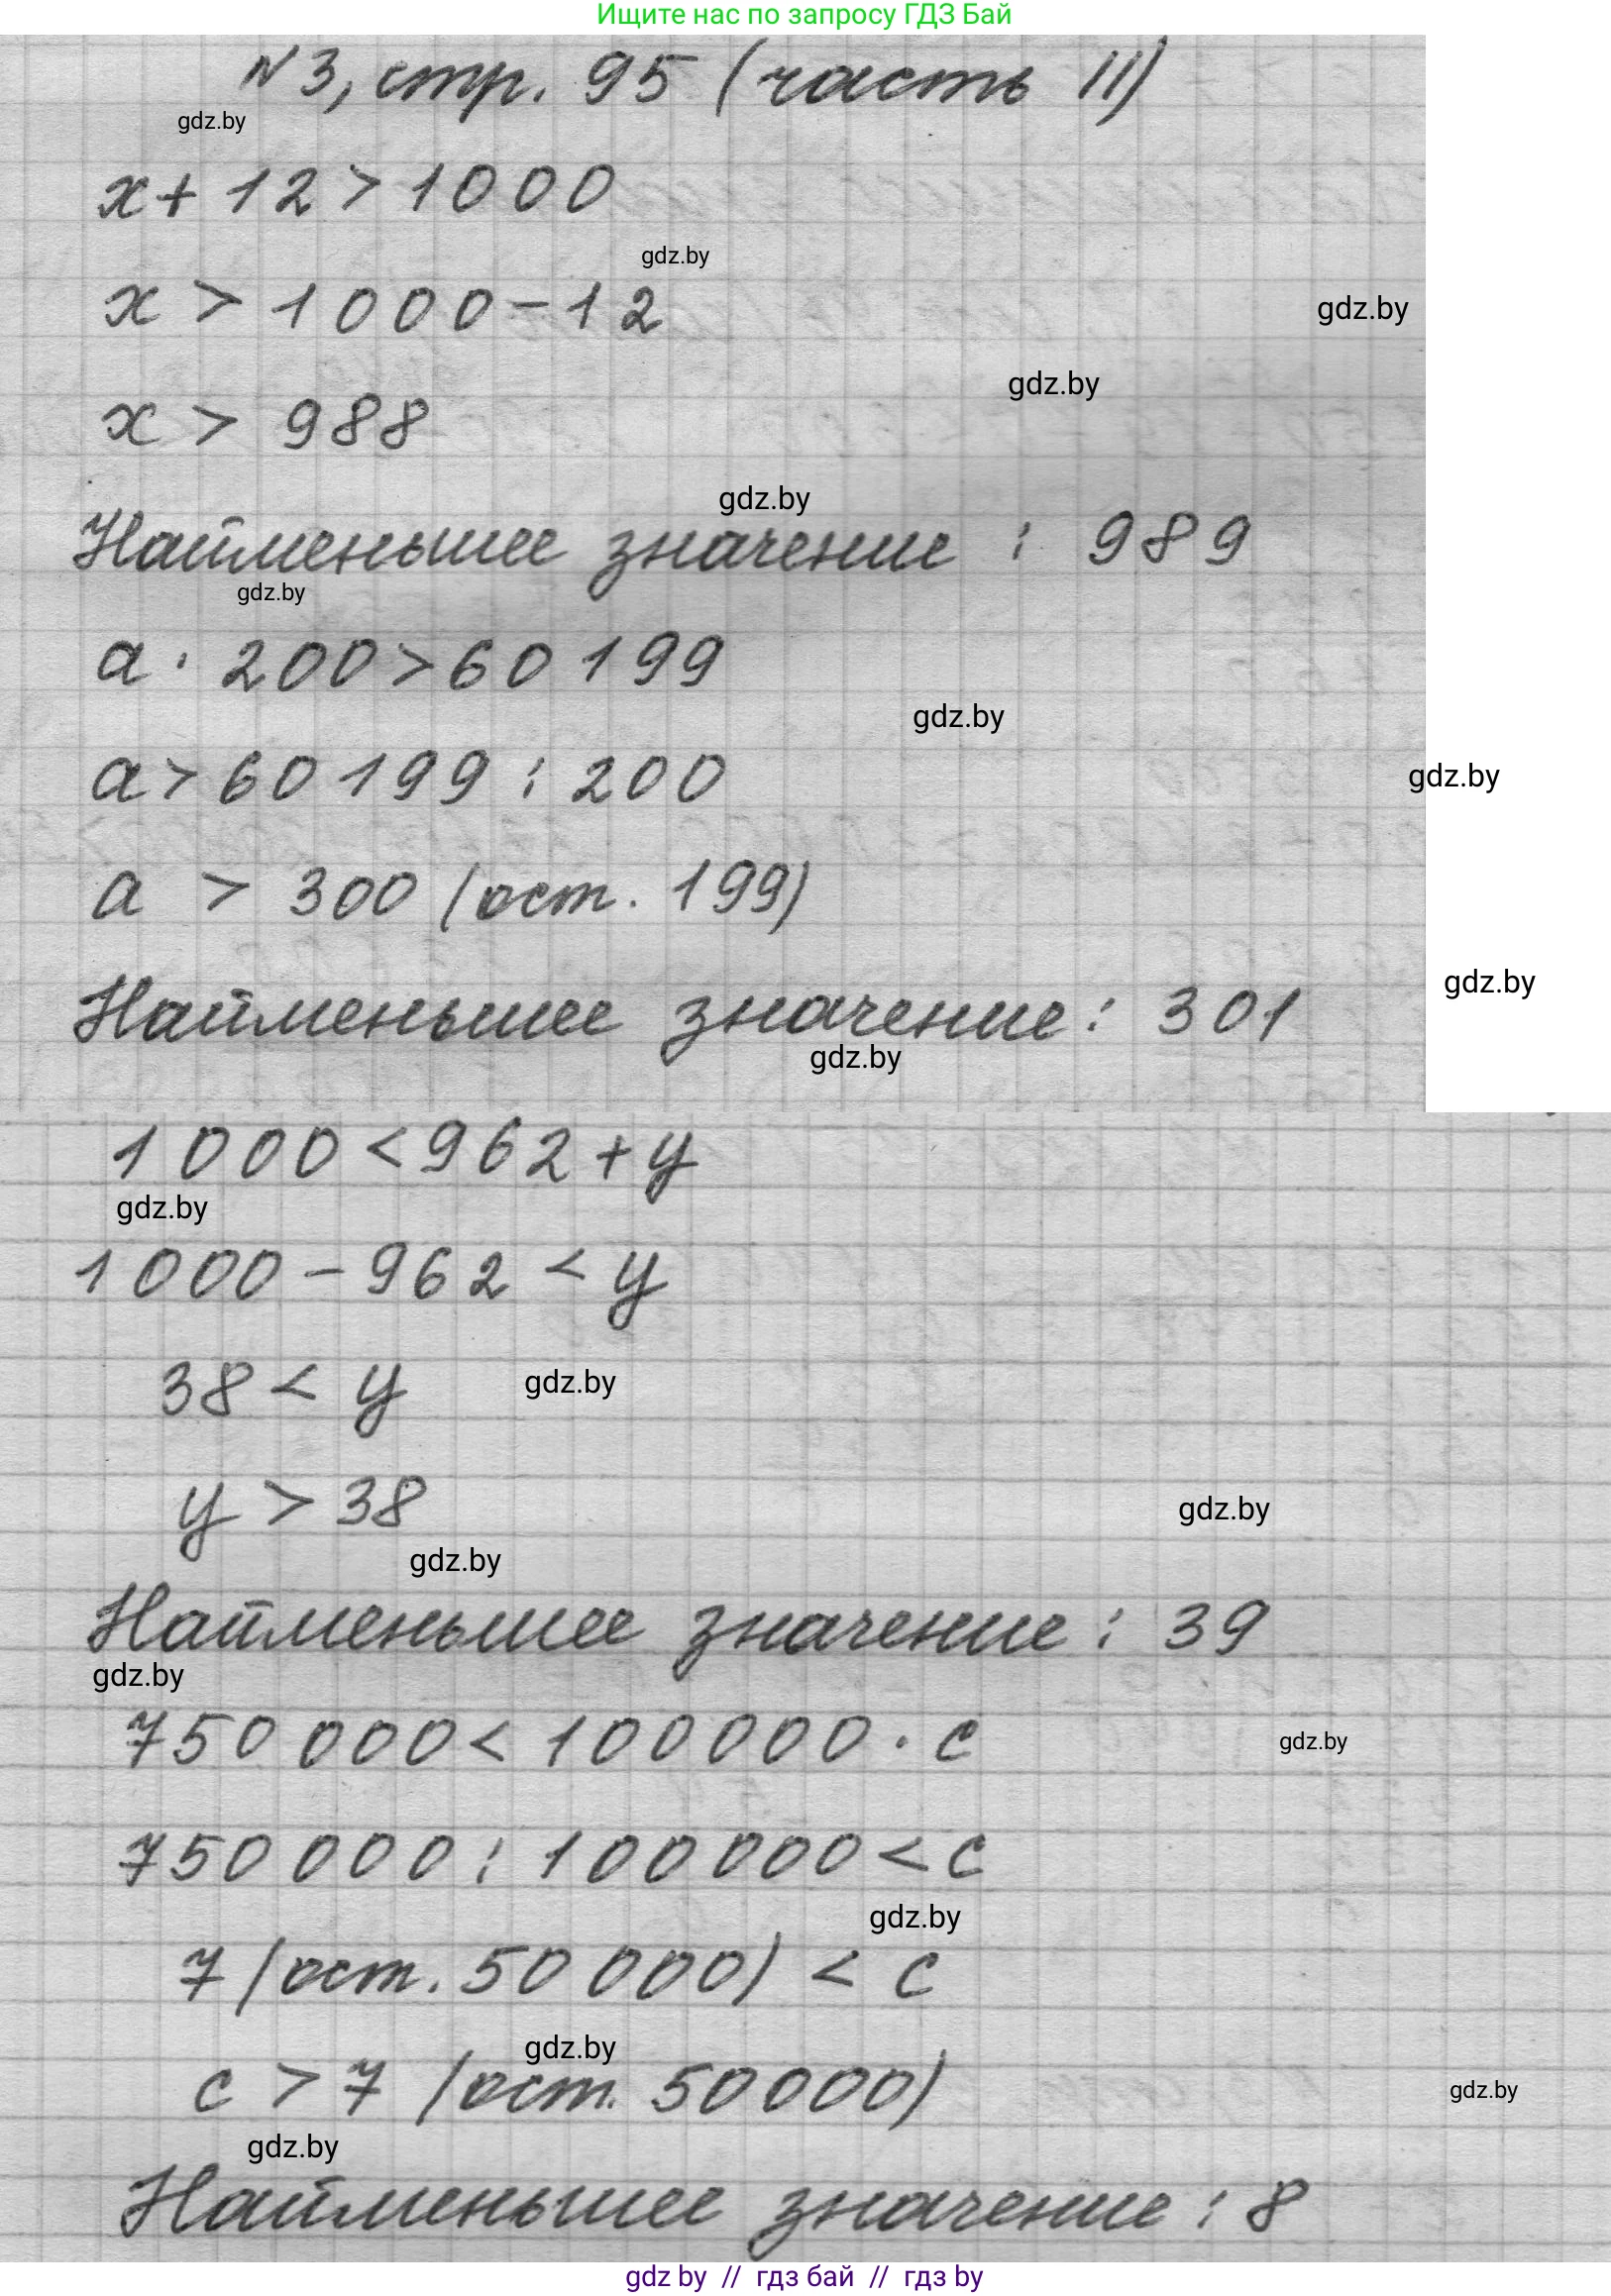 Ищите нас по запросу ГДЗ Бай
№3, стр. 95 (часть II)
gdz.by
x + 12 > 1000
gdz.by
x > 1000 - 12
gdz.by
gdz.by
x > 988
gdz.by
Наименьшее значение : 989
gdz.by
a · 200 > 60199
gdz.by
a > 60199 : 200
gdz.by
a > 300 (ост. 199)
gdz.by
Наименьшее значение : 301
gdz.by
1000 < 962 + y
gdz.by
1000 - 962 < y
38 < y
gdz.by
y > 38
gdz.by
gdz.by
Наименьшее значение : 39
gdz.by
750 000 < 100000 · c
gdz.by
750 000 : 100000 < c
gdz.by
7 (ост. 50 000) < c
gdz.by
c > 7 (ост. 50000)
gdz.by
gdz.by
Наименьшее значение : 8
gdz by // гдз бай // гдз by